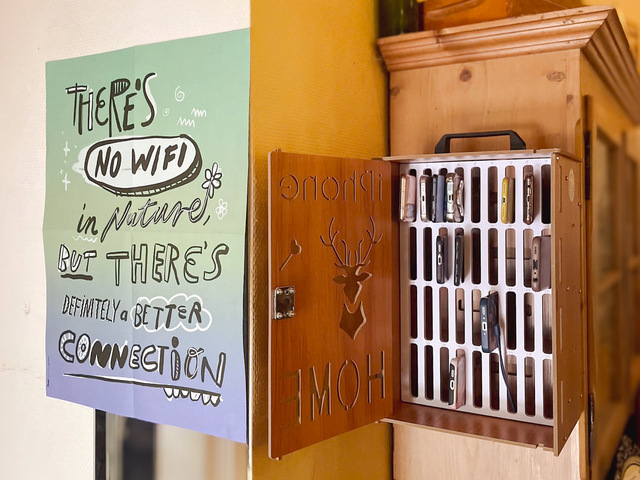 THERE'S
NO WIFI
in Nature,
BUT THERE'S
DEFINITELY a BETTER
CONNECTION
iPhone
HOME